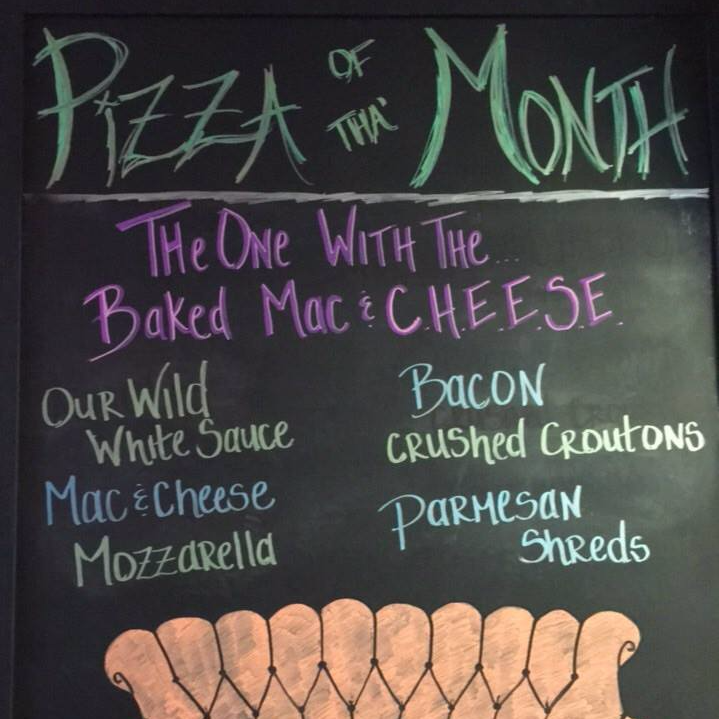 PiZZA OF THA' MONTH
THe ONe WITH THe...
Baked Mac & C.H.E.E.S.E.
OUR Wild
White Sauce
Mac & Cheese
Mozzarella
BACON
CRUSHed CROUtONS
PARMESAN
Shreds